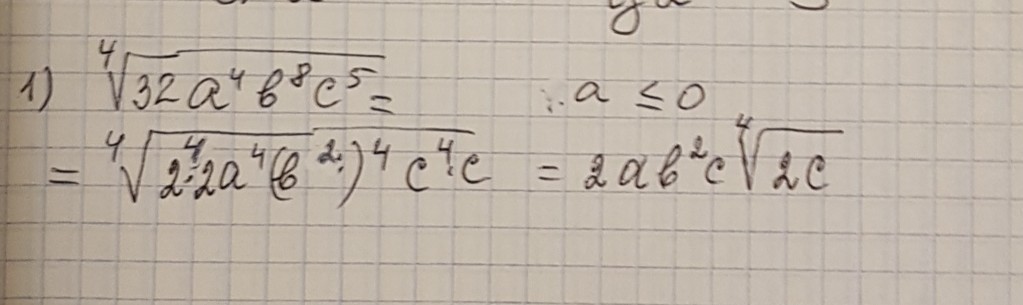 1) ⁴√(32a⁴b⁸c⁵) = a ≤ 0
= ⁴√(2⁴·2a⁴(b²)⁴c⁴·c) = 2ab²c ⁴√(2c)